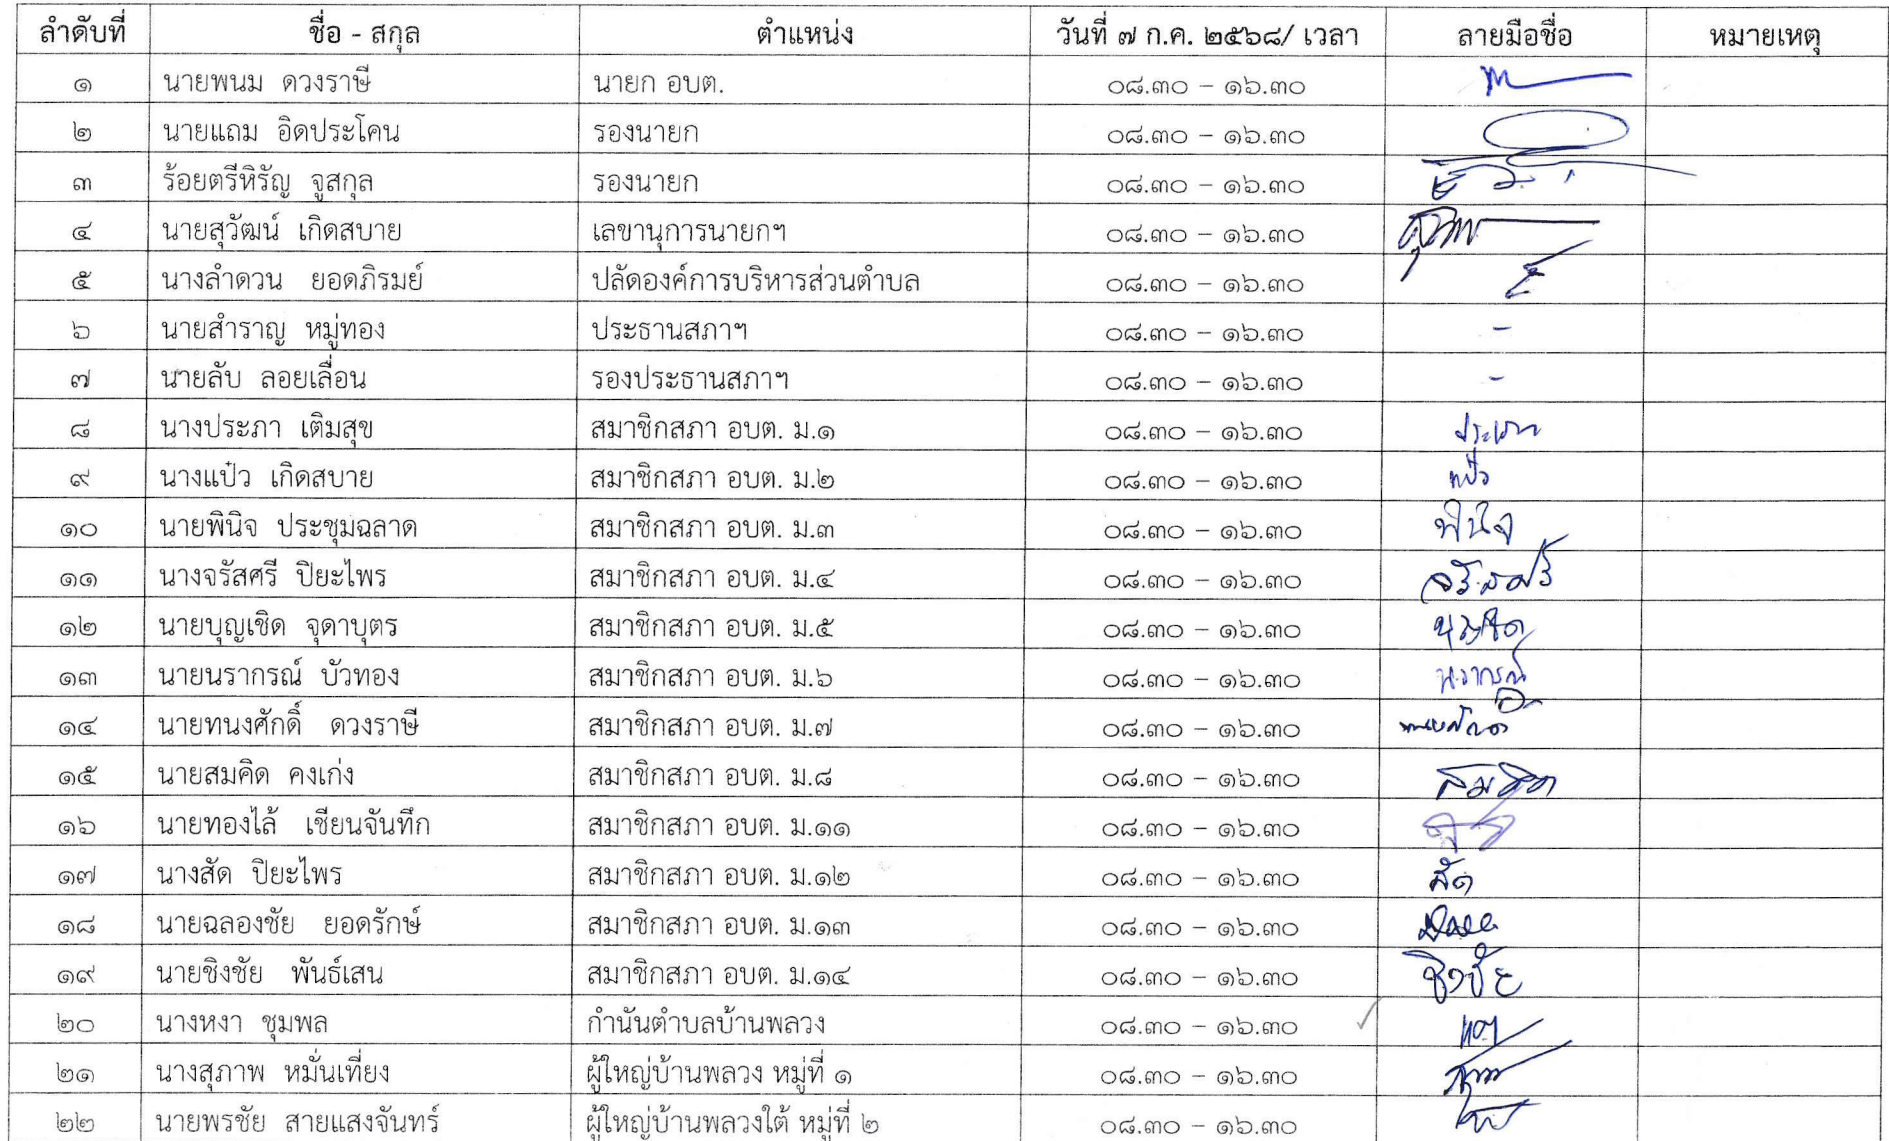 ลำดับที่ ชื่อ - สกุล ตำแหน่ง วันที่ ๗ ก.ค. ๒๕๖๘/ เวลา ลายมือชื่อ หมายเหตุ
๑ นายพนม ดวงราษี นายก อบต. ๐๘.๓๐ – ๑๖.๓๐
๒ นายแถม อิดประโคน รองนายก ๐๘.๓๐ – ๑๖.๓๐
๓ ร้อยตรีหิรัญ จูสกุล รองนายก ๐๘.๓๐ – ๑๖.๓๐
๔ นายสุวัฒน์ เกิดสบาย เลขานุการนายกฯ ๐๘.๓๐ – ๑๖.๓๐
๕ นางลำดวน ยอดภิรมย์ ปลัดองค์การบริหารส่วนตำบล ๐๘.๓๐ – ๑๖.๓๐
๖ นายสำราญ หมู่ทอง ประธานสภาฯ ๐๘.๓๐ – ๑๖.๓๐ -
๗ นายลับ ลอยเลื่อน รองประธานสภาฯ ๐๘.๓๐ – ๑๖.๓๐ -
๘ นางประภา เติมสุข สมาชิกสภา อบต. ม.๑ ๐๘.๓๐ – ๑๖.๓๐ ประภา
๙ นางแป๋ว เกิดสบาย สมาชิกสภา อบต. ม.๒ ๐๘.๓๐ – ๑๖.๓๐ แป๋ว
๑๐ นายพินิจ ประชุมฉลาด สมาชิกสภา อบต. ม.๓ ๐๘.๓๐ – ๑๖.๓๐ พินิจ
๑๑ นางจรัสศรี ปิยะไพร สมาชิกสภา อบต. ม.๔ ๐๘.๓๐ – ๑๖.๓๐ จรัสศรี
๑๒ นายบุญเชิด จุดาบุตร สมาชิกสภา อบต. ม.๕ ๐๘.๓๐ – ๑๖.๓๐ บุญเชิด
๑๓ นายนรากรณ์ บัวทอง สมาชิกสภา อบต. ม.๖ ๐๘.๓๐ – ๑๖.๓๐ นรากรณ์
๑๔ นายทนงศักดิ์ ดวงราษี สมาชิกสภา อบต. ม.๗ ๐๘.๓๐ – ๑๖.๓๐
๑๕ นายสมคิด คงเก่ง สมาชิกสภา อบต. ม.๘ ๐๘.๓๐ – ๑๖.๓๐ สมคิด
๑๖ นายทองไล้ เชียนจันทึก สมาชิกสภา อบต. ม.๑๑ ๐๘.๓๐ – ๑๖.๓๐
๑๗ นางสัด ปิยะไพร สมาชิกสภา อบต. ม.๑๒ ๐๘.๓๐ – ๑๖.๓๐ สัด
๑๘ นายฉลองชัย ยอดรักษ์ สมาชิกสภา อบต. ม.๑๓ ๐๘.๓๐ – ๑๖.๓๐
๑๙ นายชิงชัย พันธ์เสน สมาชิกสภา อบต. ม.๑๔ ๐๘.๓๐ – ๑๖.๓๐ ชิงชัย
๒๐ นางหงา ชุมพล กำนันตำบลบ้านพลวง ๐๘.๓๐ – ๑๖.๓๐
๒๑ นางสุภาพ หมั่นเที่ยง ผู้ใหญ่บ้านพลวง หมู่ที่ ๑ ๐๘.๓๐ – ๑๖.๓๐
๒๒ นายพรชัย สายแสงจันทร์ ผู้ใหญ่บ้านพลวงใต้ หมู่ที่ ๒ ๐๘.๓๐ – ๑๖.๓๐